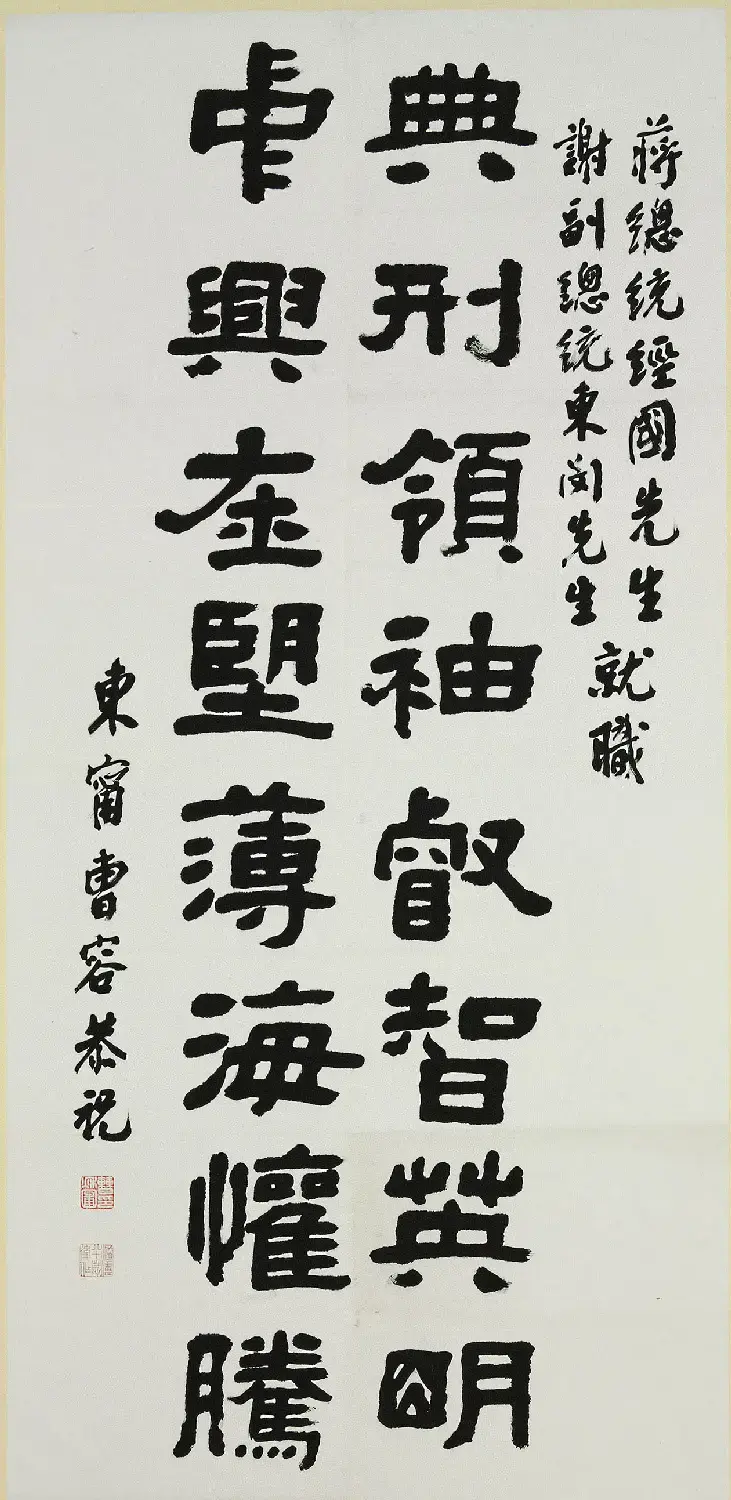 蔣總統經國先生
謝副總統東閔先生
就職
典刑領袖叡智英朙
中興在朢薄海懽騰
東甯曹容恭祝